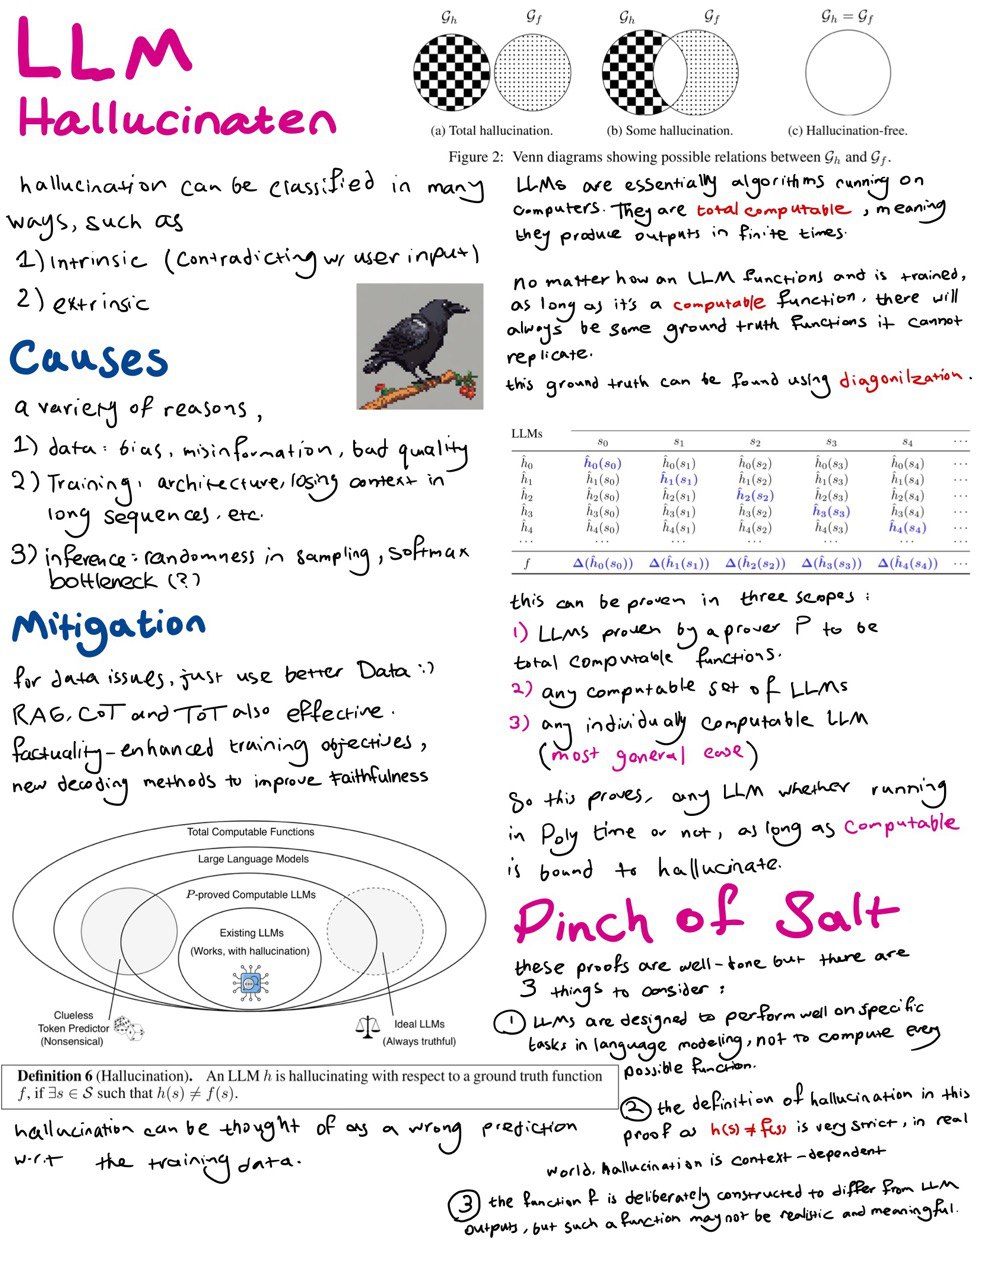 LLM
Hallucinaten
hallucination can be classified in many
ways, such as
1) Intrinsic (Contradicting w/ user input)
2) extrinsic
Causes
a variety of reasons,
1) data: bias, misinformation, bad quality
2) Training: architecture, losing context in
long sequences. etc.
3) inference: randomness in sampling, Softmax
bottleneck (?)
Mitigation
for data issues, just use better Data :)
RAG, CoT and ToT also effective.
factuality-enhanced training objectives,
new decoding methods to improve Faithfulness
Total Computable Functions
Large Language Models
P-proved Computable LLMs
Existing LLMs
(Works, with hallucination)
Clueless
Token Predictor
(Nonsensical)
Ideal LLMs
(Always truthful)
Definition 6 (Hallucination). An LLM h is hallucinating with respect to a ground truth function
f, if ∃s ∈ S such that h(s) ≠ f(s).
hallucination can be thought of as a wrong prediction
w.r.t the training data.
G_h G_f
G_h G_f
G_h = G_f
(a) Total hallucination.
(b) Some hallucination.
(c) Hallucination-free.
Figure 2: Venn diagrams showing possible relations between G_h and G_f.
LLMs are essentially algorithms running on
computers. They are total computable, meaning
they produce outputs in finite times.
no matter how an LLM functions and is trained,
as long as it's a computable function, there will
always be some ground truth functions it cannot
replicate.
this ground truth can be found using diagonilzation.
LLMs s₀ s₁ s₂ s₃ s₄ ···
ĥ₀ ĥ₀(s₀) ĥ₀(s₁) ĥ₀(s₂) ĥ₀(s₃) ĥ₀(s₄) ···
ĥ₁ ĥ₁(s₀) ĥ₁(s₁) ĥ₁(s₂) ĥ₁(s₃) ĥ₁(s₄) ···
ĥ₂ ĥ₂(s₀) ĥ₂(s₁) ĥ₂(s₂) ĥ₂(s₃) ĥ₂(s₄) ···
ĥ₃ ĥ₃(s₀) ĥ₃(s₁) ĥ₃(s₂) ĥ₃(s₃) ĥ₃(s₄) ···
ĥ₄ ĥ₄(s₀) ĥ₄(s₁) ĥ₄(s₂) ĥ₄(s₃) ĥ₄(s₄) ···
··· ··· ··· ··· ··· ···
f Δ(ĥ₀(s₀)) Δ(ĥ₁(s₁)) Δ(ĥ₂(s₂)) Δ(ĥ₃(s₃)) Δ(ĥ₄(s₄)) ···
this can be proven in three scopes:
1) LLMs proven by a prover P to be
total computable functions.
2) any computable set of LLMs
3) any individually computable LLM
(most general case)
So this proves, any LLM whether running
in Poly time or not, as long as computable
is bound to hallucinate.
Pinch of Salt
these proofs are well-done but there are
3 things to consider:
1 LLMs are designed to perform well on specific
tasks in language modeling, not to compute every
possible function.
2 the definition of hallucination in this
proof as h(s) ≠ f(s) is very strict, in real
world, hallucination is context-dependent
3 the function f is deliberately constructed to differ from LLM
outputs, but such a function may not be realistic and meaningful.